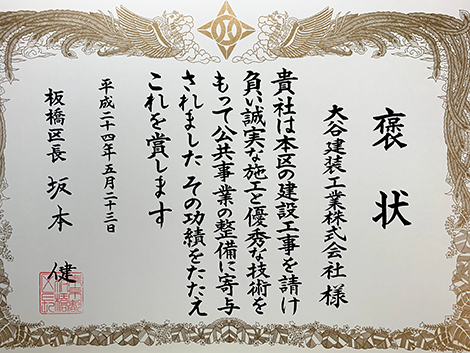 褒状
大谷建装工業株式会社 様
貴社は本区の建設工事を請け
負い誠実な施工と優秀な技術を
もって公共事業の整備に寄与
されました その功績をたたえ
これを賞します
平成二十四年五月二十三日
板橋区長 坂本 健